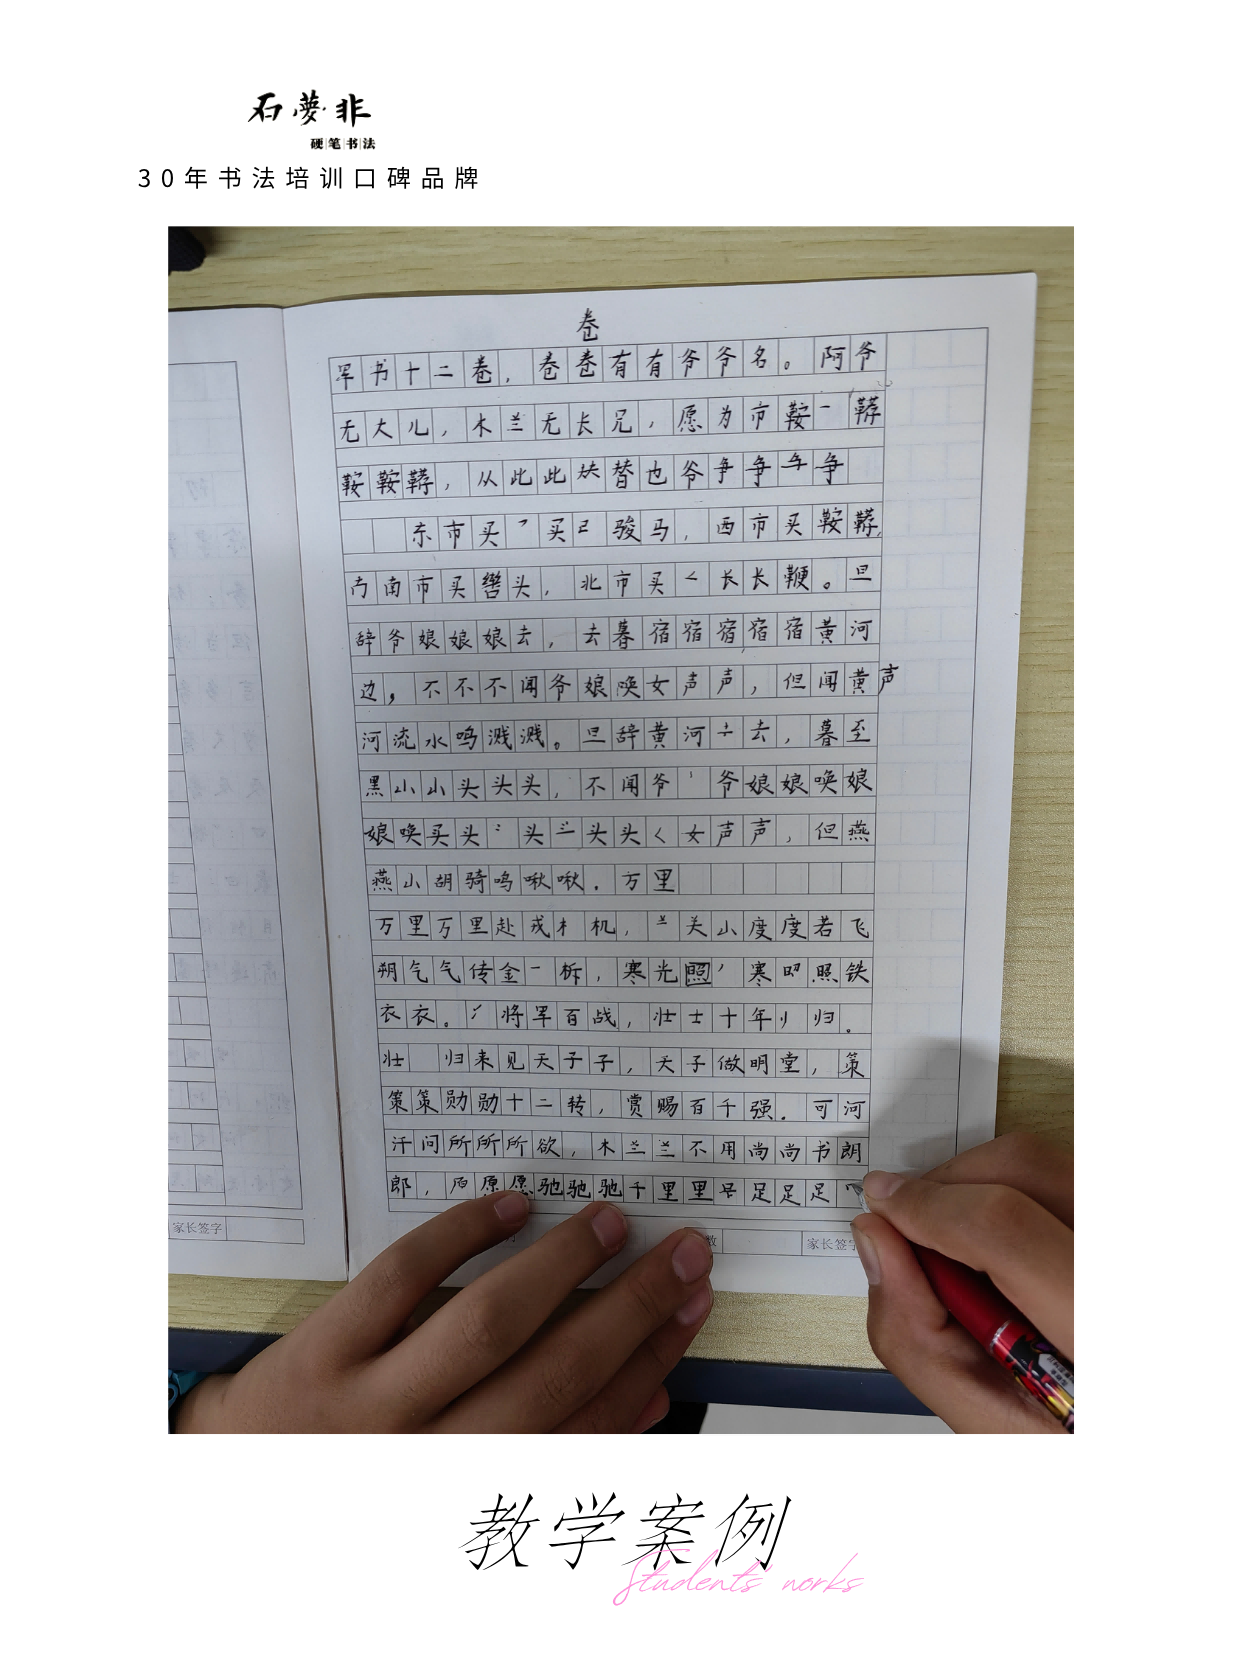 石夢非
硬笔书法
30年书法培训口碑品牌
卷
军书十二卷，卷卷有有爷爷名。阿爷
无大儿，木兰无长兄，愿为市鞍一鞯
鞍鞍鞯，从此此替也爷争争争
东市买买骏马，西市买鞍鞯，
南市买辔头，北市买长长鞭。旦
辞爷娘娘娘去，去暮宿宿宿宿宿黄河
边，不不不闻爷娘唤女声声，但闻黄声
河流水鸣溅溅。旦辞黄河去，暮至
黑小山头头头，不闻爷爷娘娘唤娘
娘唤买头头兰头头女声声，但燕
燕小胡骑鸣啾啾。万里
万里万里赴戎机，关山度度若飞
朔气气传金一柝，寒光照寒照铁
衣衣。将军百战，壮士十年归。
壮归来见天子子，天子做明堂，策
策策勋勋十二转，赏赐百千强。可河
汗问所所所欲，木兰兰不用尚尚书朗
郎，愿愿驰驰驰千里里足足足
家长签字
数
家长签字
教学案例
Students' norks